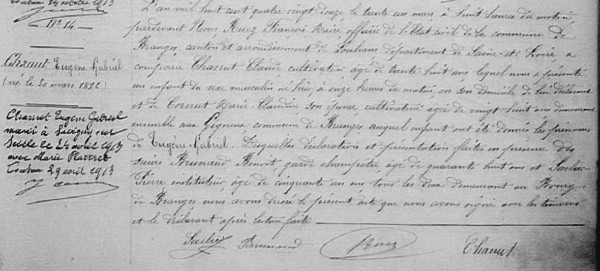 N° 14.
Chanut Eugène Gabriel
(né le 30 mars 1892)
Chanut Eugène Gabriel
marié à Savigny sur
Seille le 24 avril 1913
avec Marie
29 avril 1913
L'an mil huit cent quatre vingt douze le trente un mars à huit heures du matin,
pardevant Nous, François Maire, officier de l'Etat civil de la commune de
Branges, canton et arrondissement de Louhans département de Saône-et-Loire a
comparu Chanut Claude cultivateur âgé de trente huit ans lequel nous a présenté
un enfant du sexe masculin né hier à onze heures du matin en son domicile de lui déclarant
et de Marie Claudine son épouse cultivatrice âgée de vingt huit ans demeurant
ensemble aux commune de Branges auquel enfant ont été donnés les prénoms
de Eugène-Gabriel. Lesquelles déclaration et présentation faites en présence des
sieurs Benoit garde champêtre âgé de quarante huit ans et
Pierre instituteur âgé de cinquante un ans tous les deux demeurant au Bourg
de Branges nous avons dressé le présent acte que nous avons signé avec les témoins
et le déclarant après lecture faite
Chanut